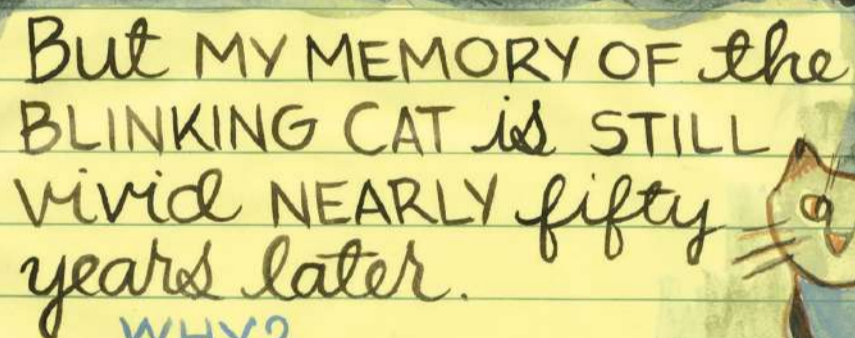 But MY MEMORY OF the
BLINKING CAT is STILL
vivid NEARLY fifty
years later.
WHY?